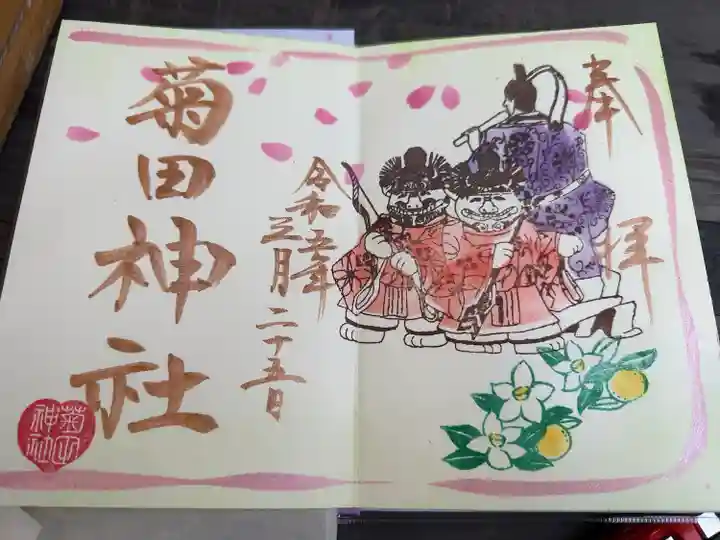 奉拝
令和五年
三月二十五日
菊田神社
菊田
神社